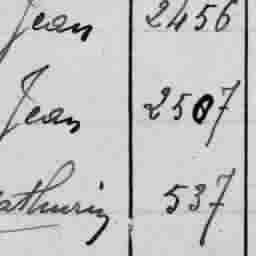 Jean 2456
Jean 2507
athurin 537